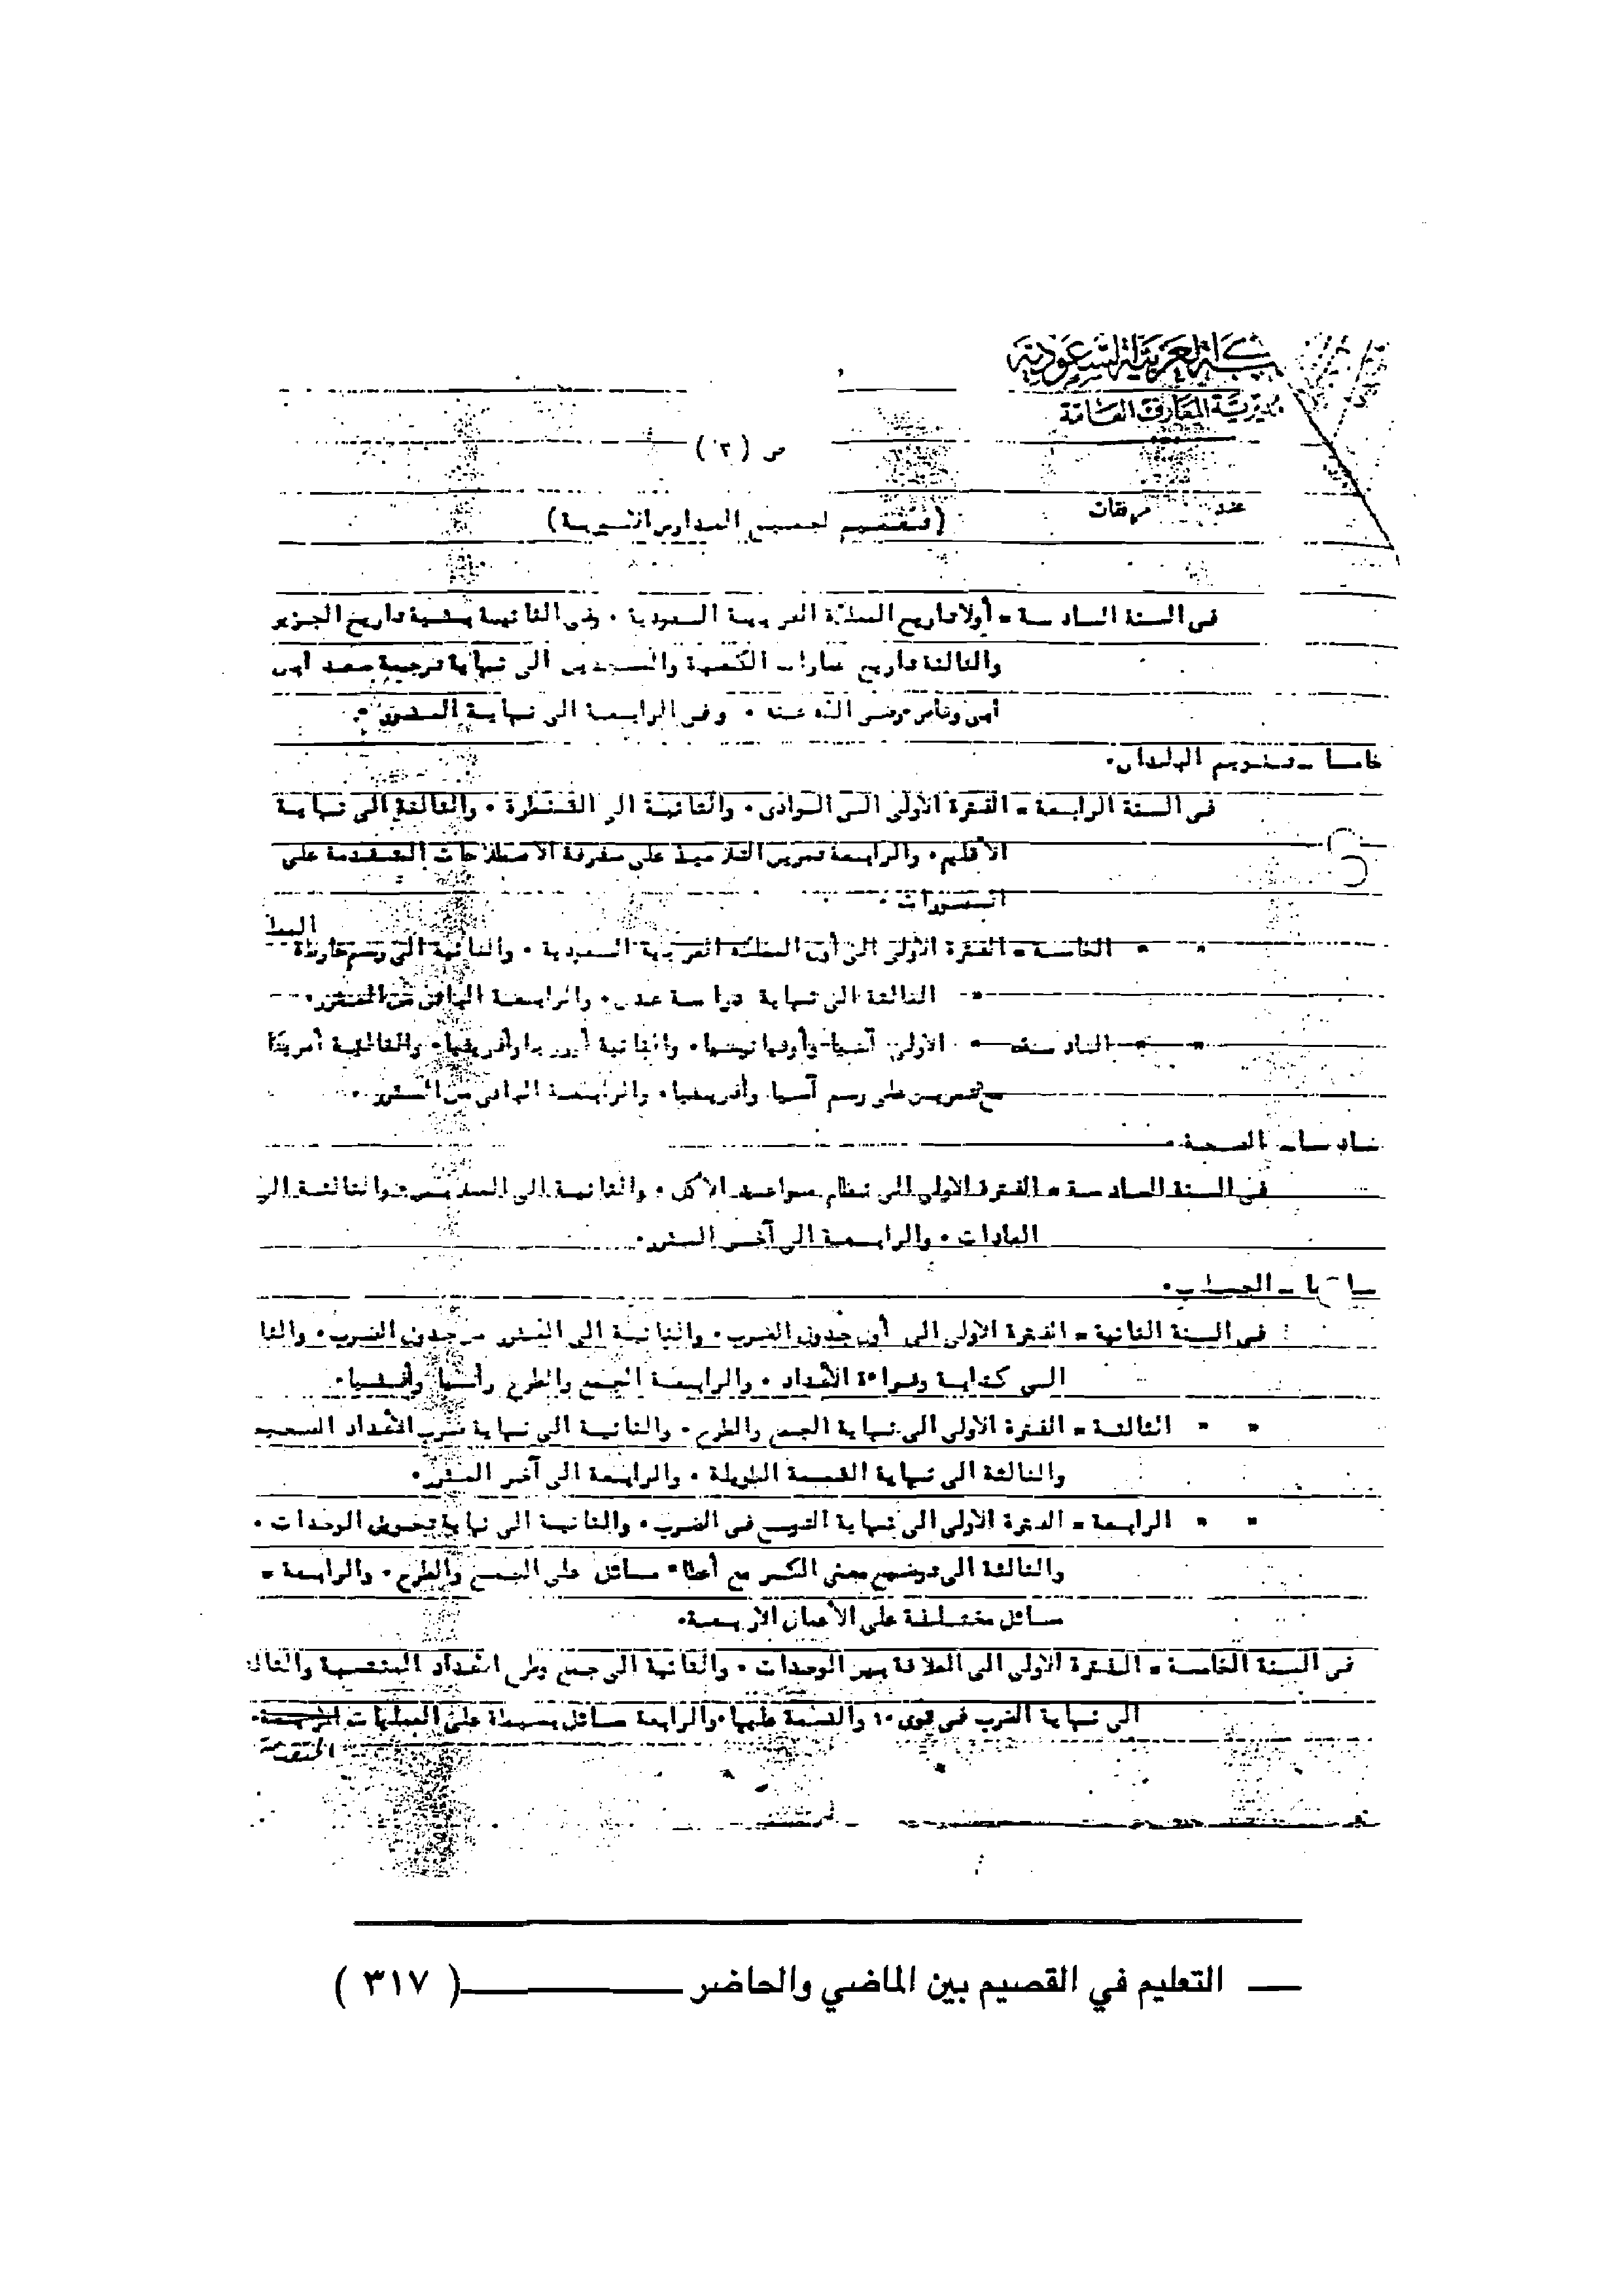 المملكة العربية السعودية
مديرية المعارف العامة
ص (٣)
عدد مرفقات
(تعميم لجميع المدارس الأميرية)
في السنة السادسة = أولا تاريخ المملكة العربية السعودية ٠ وفي الثانية بقية تاريخ الجزير
والثالثة تاريخ عمارات الكعبة والمسجدين الى نهاية ترجمة سعد ابن
أبي وقاص رضى الله عنه ٠ وفي الرابعة الى نهاية المقرر ٠
خامسا ــ تقويم البلدان ٠
في السنة الرابعة = الفترة الأولى الى الوادى ٠ والثانية الى القنطرة ٠ والثالثة الى نهاية
الأقليم ٠ والرابعة تمرين التلاميذ على معرفة الاصطلاحات المتقدمة على
المصورات ٠
" " الخامسة = الفترة الأولى الى أول المملكة العربية السعودية ٠ والثانية الى رسم خارطة
الثالثة الى نهاية دراسة عدن ٠ والرابعة الباقى من المقرر ٠
" " السادسة = الأولى آسيا وأوقيانيسيا ٠ والثانية أوروبا وأفريقيا ٠ والثالثة أمريكا
مع تمرين على رسم آسيا وأفريقيا ٠ والرابعة الباقى من المقرر ٠
سادسا ــ الصحة ٠
في السنة السادسة = الفترة الاولى الى نظام مواعيد الأكل ٠ والثانية الى والثالثة الى
العادات ٠ والرابعة الى آخر المقرر ٠
سابعا ــ الحساب ٠
في السنة الثانية = الفترة الأولى الى أول جدول الضرب ٠ والثانية الى من جدول الضرب ٠ والثا
الى كتابة وقراءة الأعداد ٠ والرابعة الجمع والطرح رأسيا وأفقيا ٠
" " الثالثة = الفترة الأولى الى نهاية الجمع والطرح ٠ والثانية الى نهاية ضرب الأعداد الصحيحة
والثالثة الى نهاية القسمة الطويلة ٠ والرابعة الى آخر المقرر ٠
" " الرابعة = الفترة الأولى الى نهاية التوسع في الضرب ٠ والثانية الى نهاية تحويل الوحدات ٠
والثالثة الى توضيح معنى الكسر مع أعطاء مسائل على الجمع والطرح ٠ والرابعة =
مسائل مختلفة على الأعمال الأربعة ٠
في السنة الخامسة = الفترة الأولى الى العلاقة بين الوحدات ٠ والثانية الى جمع وطرح الأعداد والثالثة
الى نهاية الضرب في قوى ١٠ والقسمة عليها ٠ والرابعة مسائل بسيطة على العمليات
ــ التعليم في القصيم بين الماضي والحاضر ــ ( ٣١٧ )